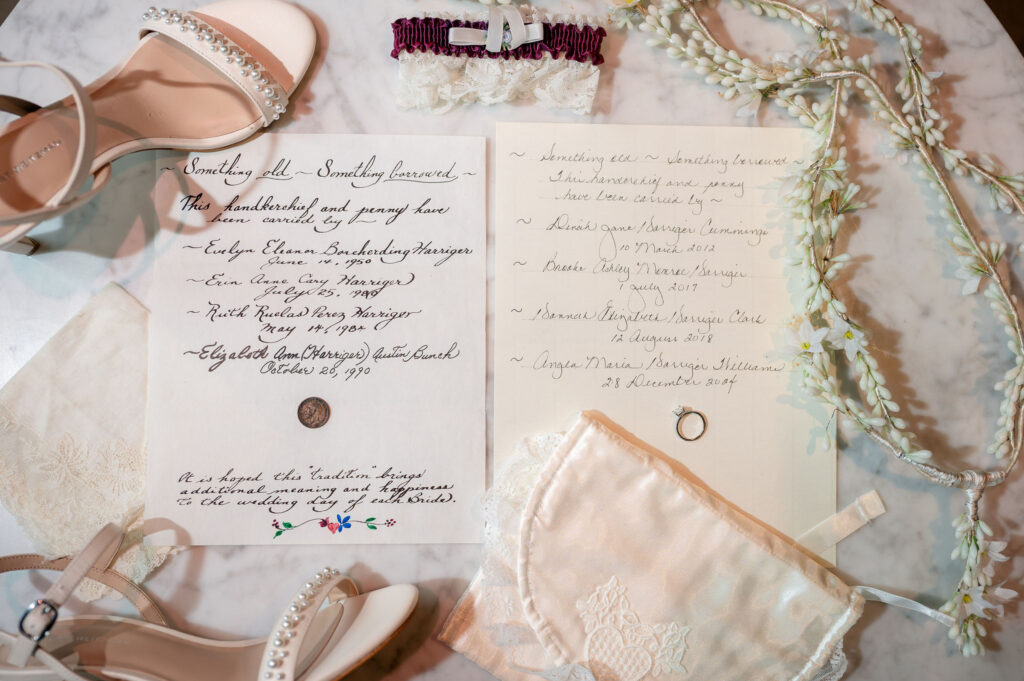 ~ Something old ~ Something borrowed ~
This handkerchief and penny have
been carried by ~
~ Evelyn Eleanor Borcherding Harriger
June 14, 1950
~ Erin Anne Cary Harriger
July 25, 1980
~ Ruth Ruelas Perez Harriger
May 14, 1984
~ Elizabeth Ann (Harriger) Austin Bunch
October 20, 1990
It is hoped this "tradition" brings
additional meaning and happiness
to the wedding day of each Bride.
~ Something old ~ Something borrowed ~
This handerchief and penny
have been carried by ~
~ Dinah Jane Harriger Cummings
10 March 2012
~ Brooke Ashley Monroe Harriger
1 July 2017
~ Hannah Elizabeth Harriger Clark
12 August 2018
~ Angela Maria Harriger Williams
28 December